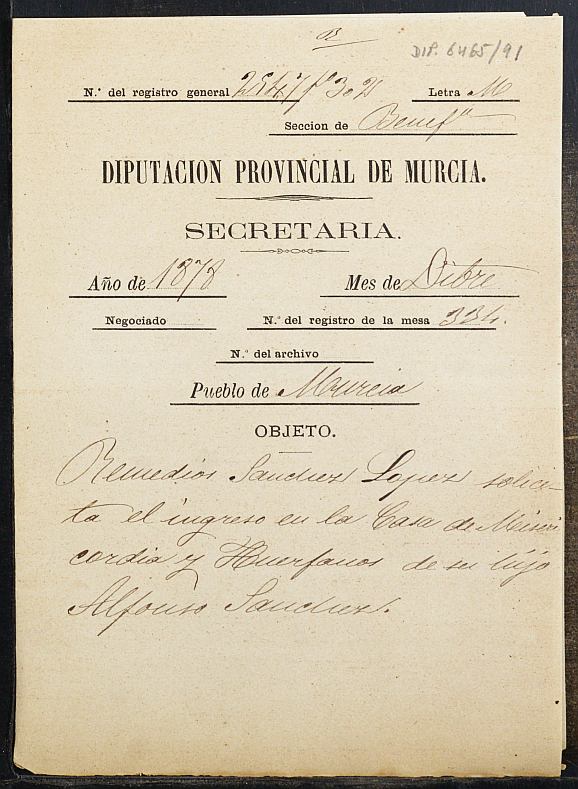 DIP. 6465/91
N.º del registro general 2547 fº 302 Letra M
Seccion de Benefª
DIPUTACION PROVINCIAL DE MURCIA.
SECRETARIA.
Año de 1878 Mes de Dibre
Negociado N.º del registro de la mesa 334.
N.º del archivo
Pueblo de Murcia
OBJETO.
Remedios Sanchez Lopez solici-
ta el ingreso en la Casa de Miseri
cordia y Huerfanos de su hijo
Alfonso Sanchez.